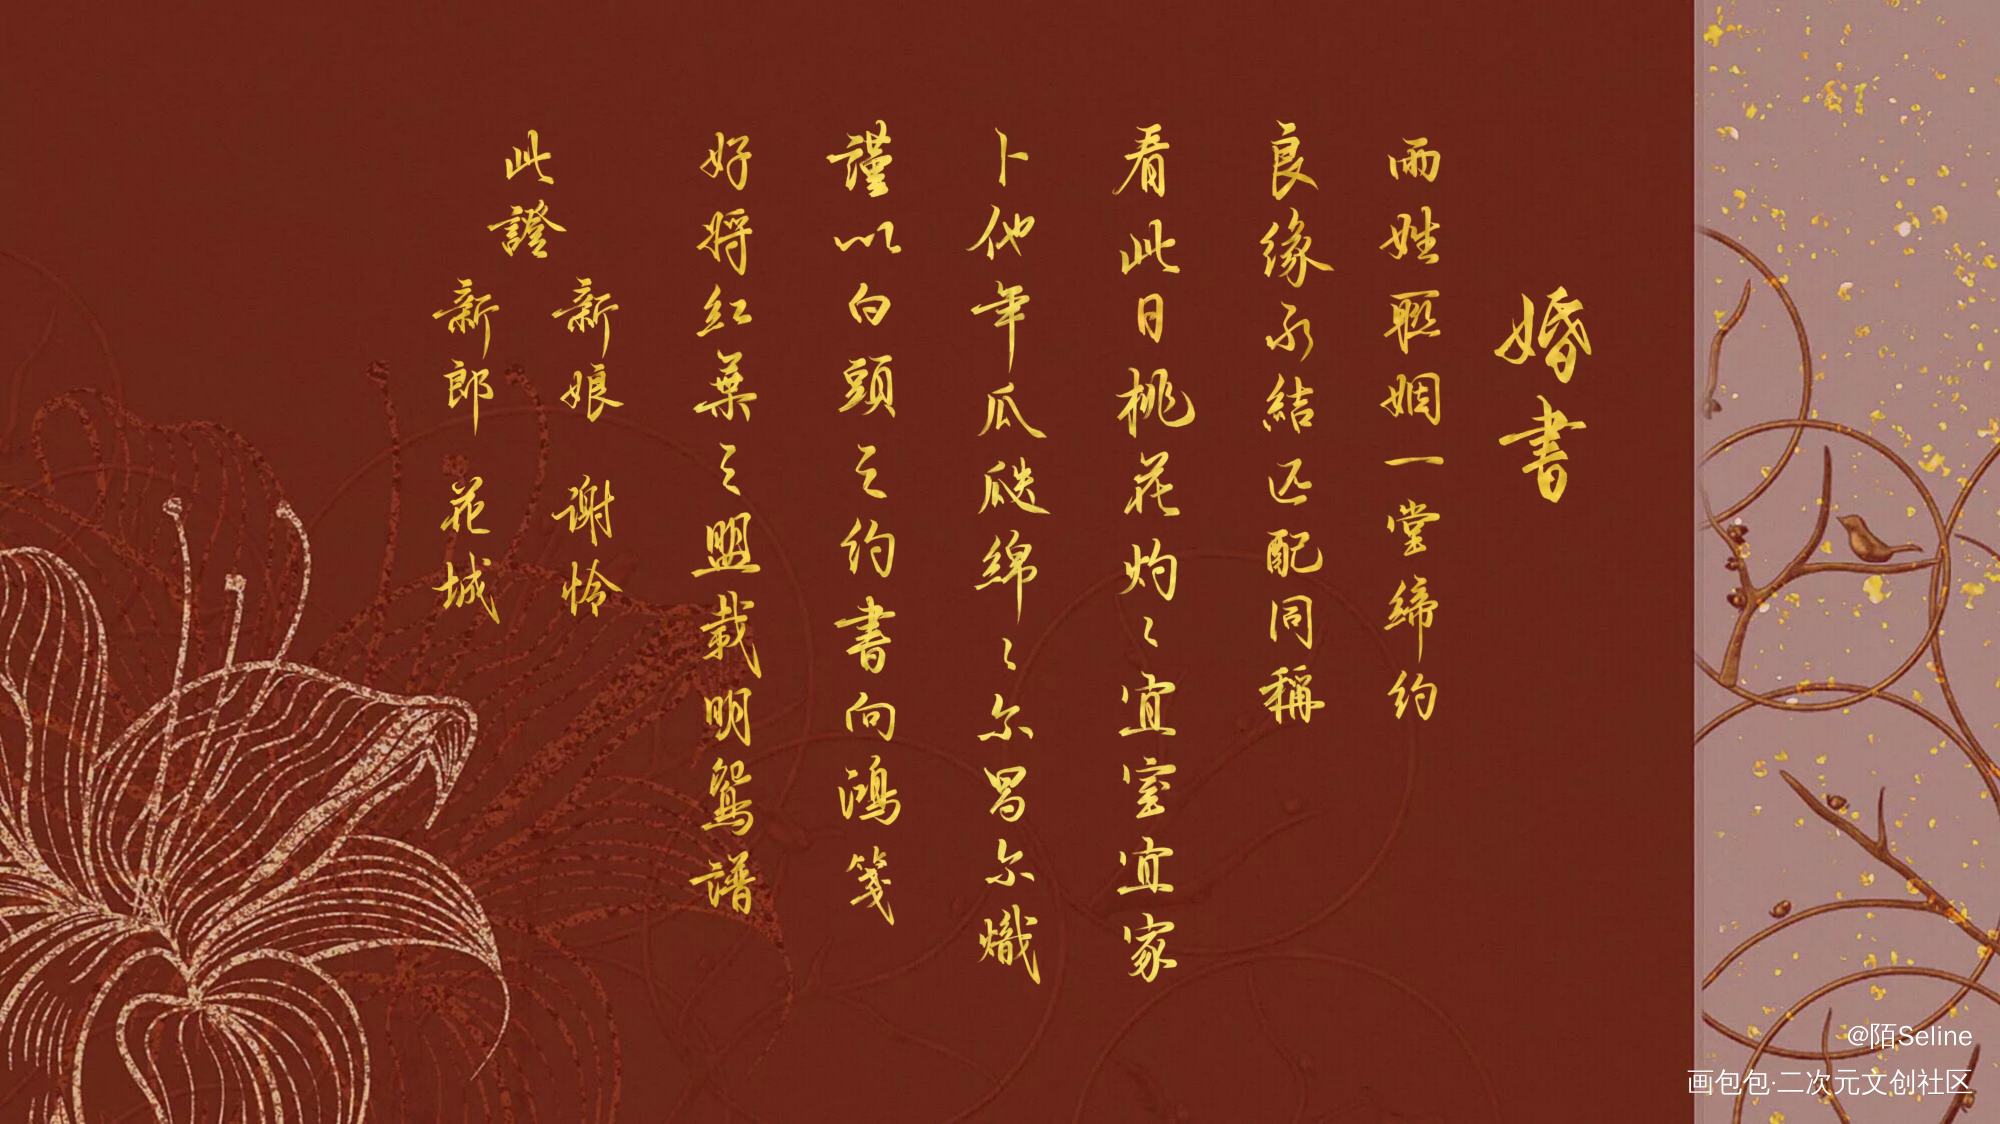 婚書
兩姓聯姻一堂締約
良緣永結匹配同稱
看此日桃花灼〻宜室宜家
卜他年瓜瓞綿〻尔昌尔熾
謹以白頭之約書向鴻箋
好將紅葉之盟載明鴛譜
此證
新娘 谢怜
新郎 花城
@陌Seline
画包包·二次元文创社区